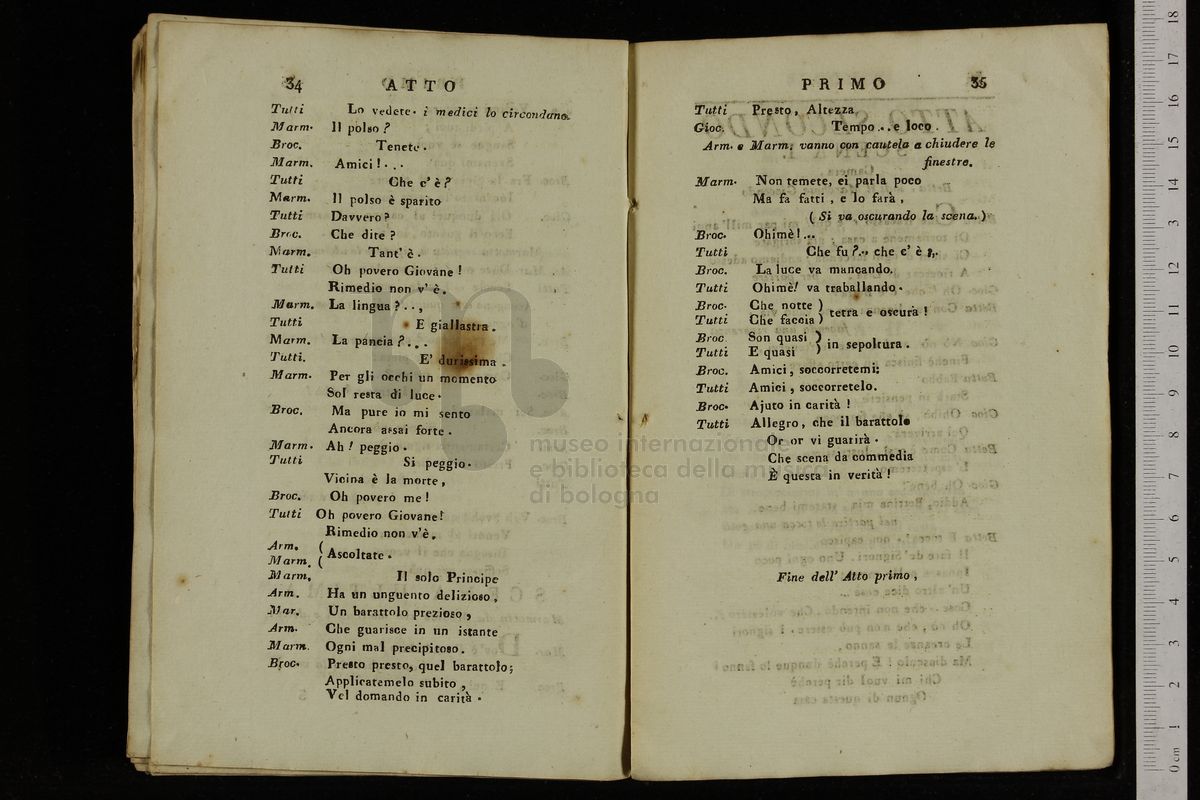 34 ATTO
Tutti Lo vedete. i medici lo circondano.
Marm. Il polso?
Broc. Tenete.
Marm. Amici!...
Tutti Che c'è?
Marm. Il polso è sparito
Tutti Davvero?
Broc. Che dite?
Marm. Tant' è.
Tutti Oh povero Giovane!
Rimedio non v' è.
Marm. La lingua?..,
Tutti E giallastra.
Marm. La pancia?...
Tutti. E' durissima.
Marm. Per gli occhi un momento
Sol resta di luce.
Broc. Ma pure io mi sento
Ancora assai forte.
Marm. Ah! peggio.
Tutti Si peggio.
Vicina è la morte,
Broc. Oh povero me!
Tutti Oh povero Giovane!
Rimedio non v'è.
Arm. (
Marm. ( Ascoltate.
Marm. Il solo Principe
Arm. Ha un unguento delizioso,
Mar. Un barattolo prezioso,
Arm. Che guarisce in un istante
Marm. Ogni mal precipitoso.
Broc. Presto presto, quel barattolo;
Applicatemelo subito,
Vel domando in carità.
PRIMO 35
Tutti Presto, Altezza
Gioc. Tempo...e loco.
Arm. e Marm. vanno con cautela a chiudere le
finestre.
Marm. Non temete, ei parla poco
Ma fa fatti, e lo farà,
(Si va oscurando la scena.)
Broc. Ohimè!...
Tutti Che fu?... che c' è?..
Broc. La luce va mancando.
Tutti Ohimè! va traballando.
Broc. Che notte )
Tutti Che faccia ) tetra e oscura!
Broc Son quasi )
Tutti E quasi ) in sepoltura.
Broc. Amici, soccorretemi;
Tutti Amici, soccorretelo.
Broc. Ajuto in carità!
Tutti Allegro, che il barattolo
Or or vi guarirà.
Che scena da commedia
È questa in verità!
Fine dell' Atto primo,
museo internazionale
e biblioteca della musica
di bologna
0 cm 1 2 3 4 5 6 7 8 9 10 11 12 13 14 15 16 17 18